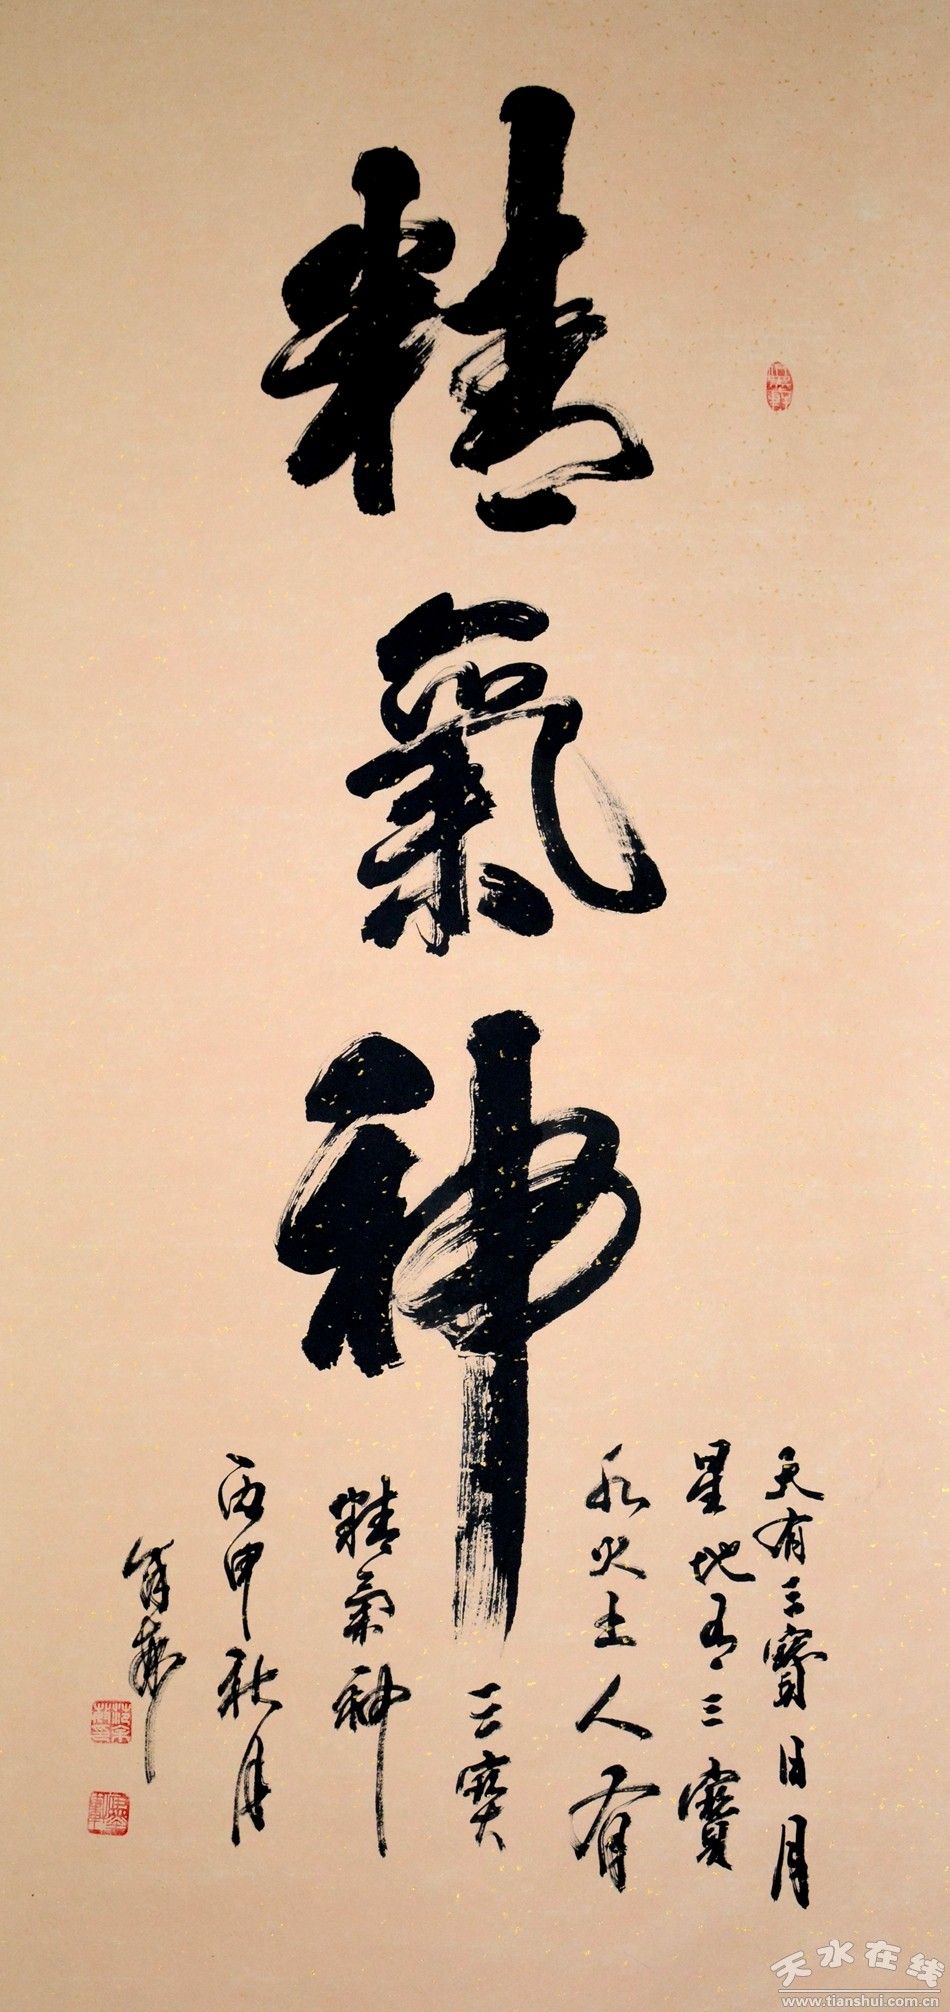 精氣神
天有三寶日月
星地有三寶
水火土人有
三寶
精氣神
丙申秋月
天水在线
www.tianshui.com.cn